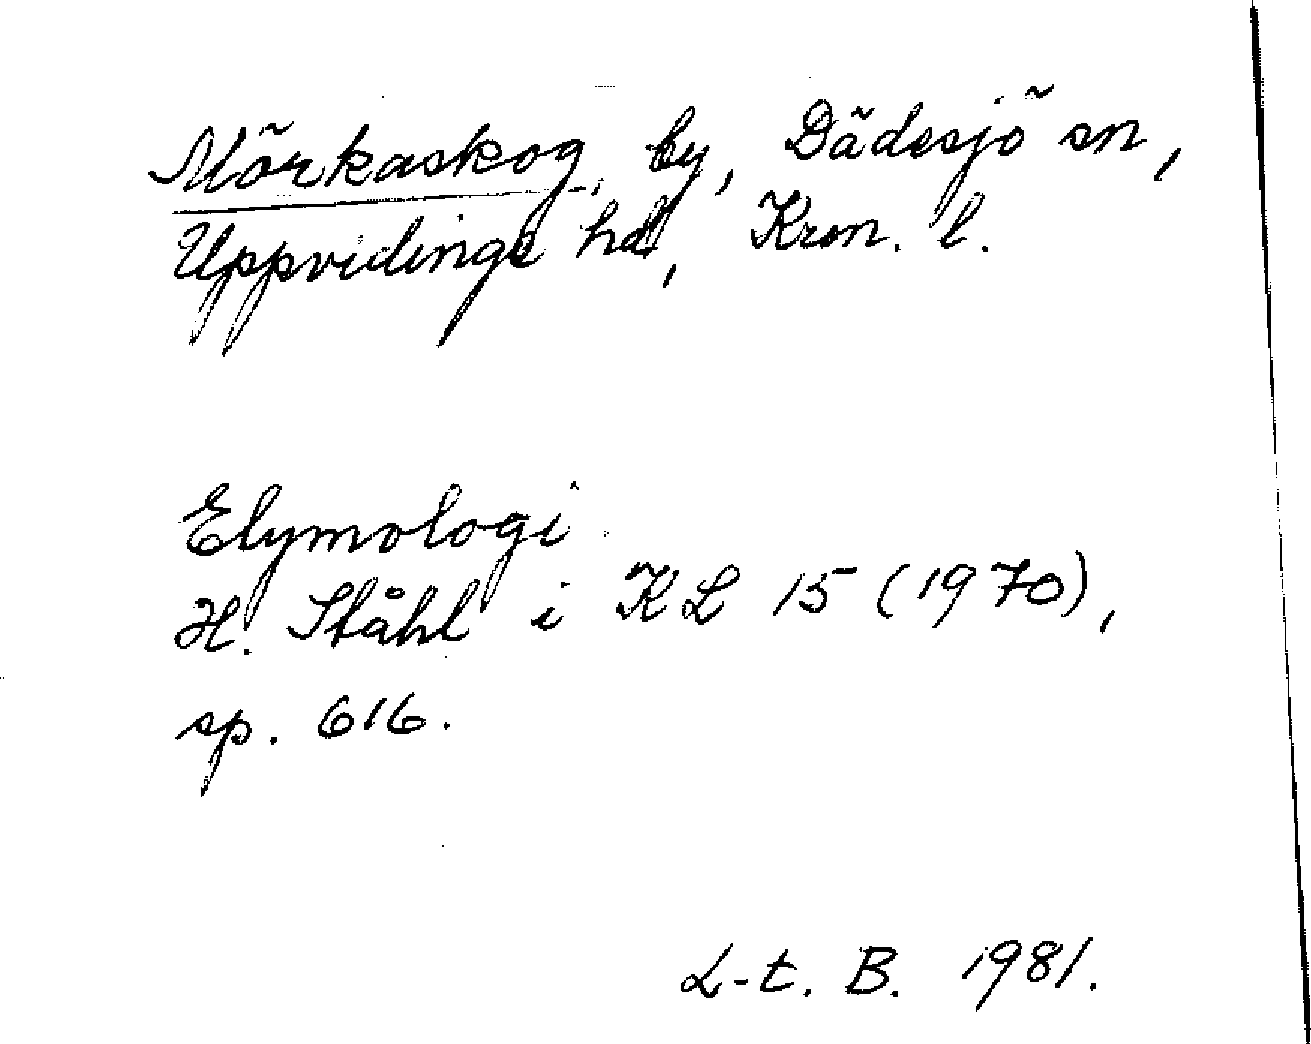 Mörkaskog, by, Dädesjö sn,
Uppvidinge hd, Kron. l.
Etymologi
H. Ståhl i KL 15 (1970),
sp. 616.
L-t. B. 1981.